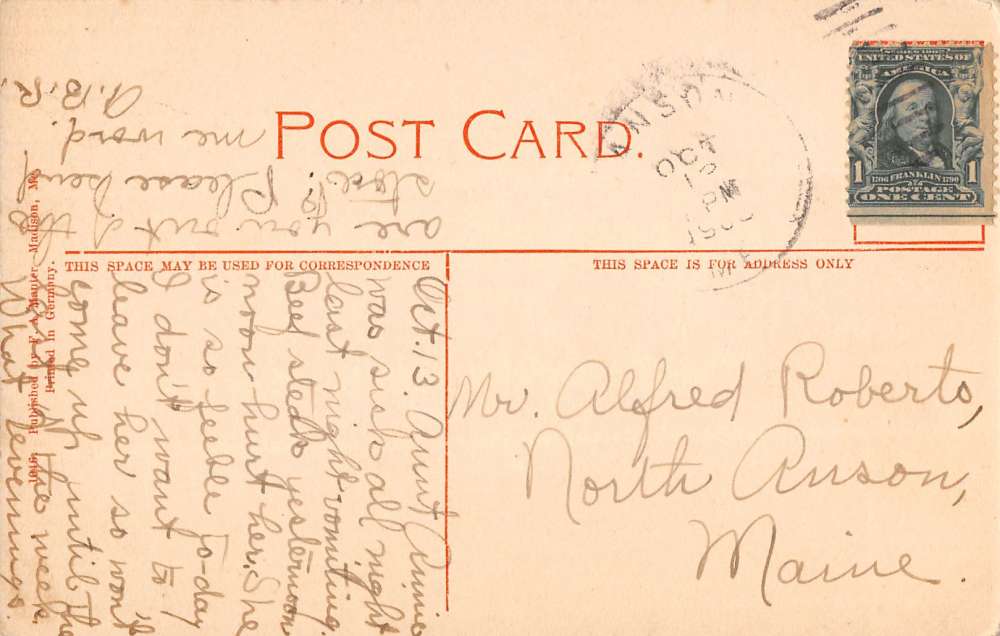 POST CARD.
THIS SPACE MAY BE USED FOR CORRESPONDENCE
THIS SPACE IS FOR ADDRESS ONLY
SERIES 1902
UNITED STATES OF
AMERICA
1 1
1706 FRANKLIN 1790
POSTAGE
ONE CENT
ANSON
OCT
15
PM
ME
Mr. Alfred Roberts,
North Anson,
Maine.
Oct. 13. Aunt Annie
was sick all night
last night vomiting.
Beef steak yesternoon
noon hurt her. She
is so feeble to-day
I don't want to
leave her so won't
come up until the
last of the week.
What evenings
are you out of the
store? Please send
me word.
A.B.R.
1046. Published by F. A. Manter, Madison, Me.
Printed in Germany.